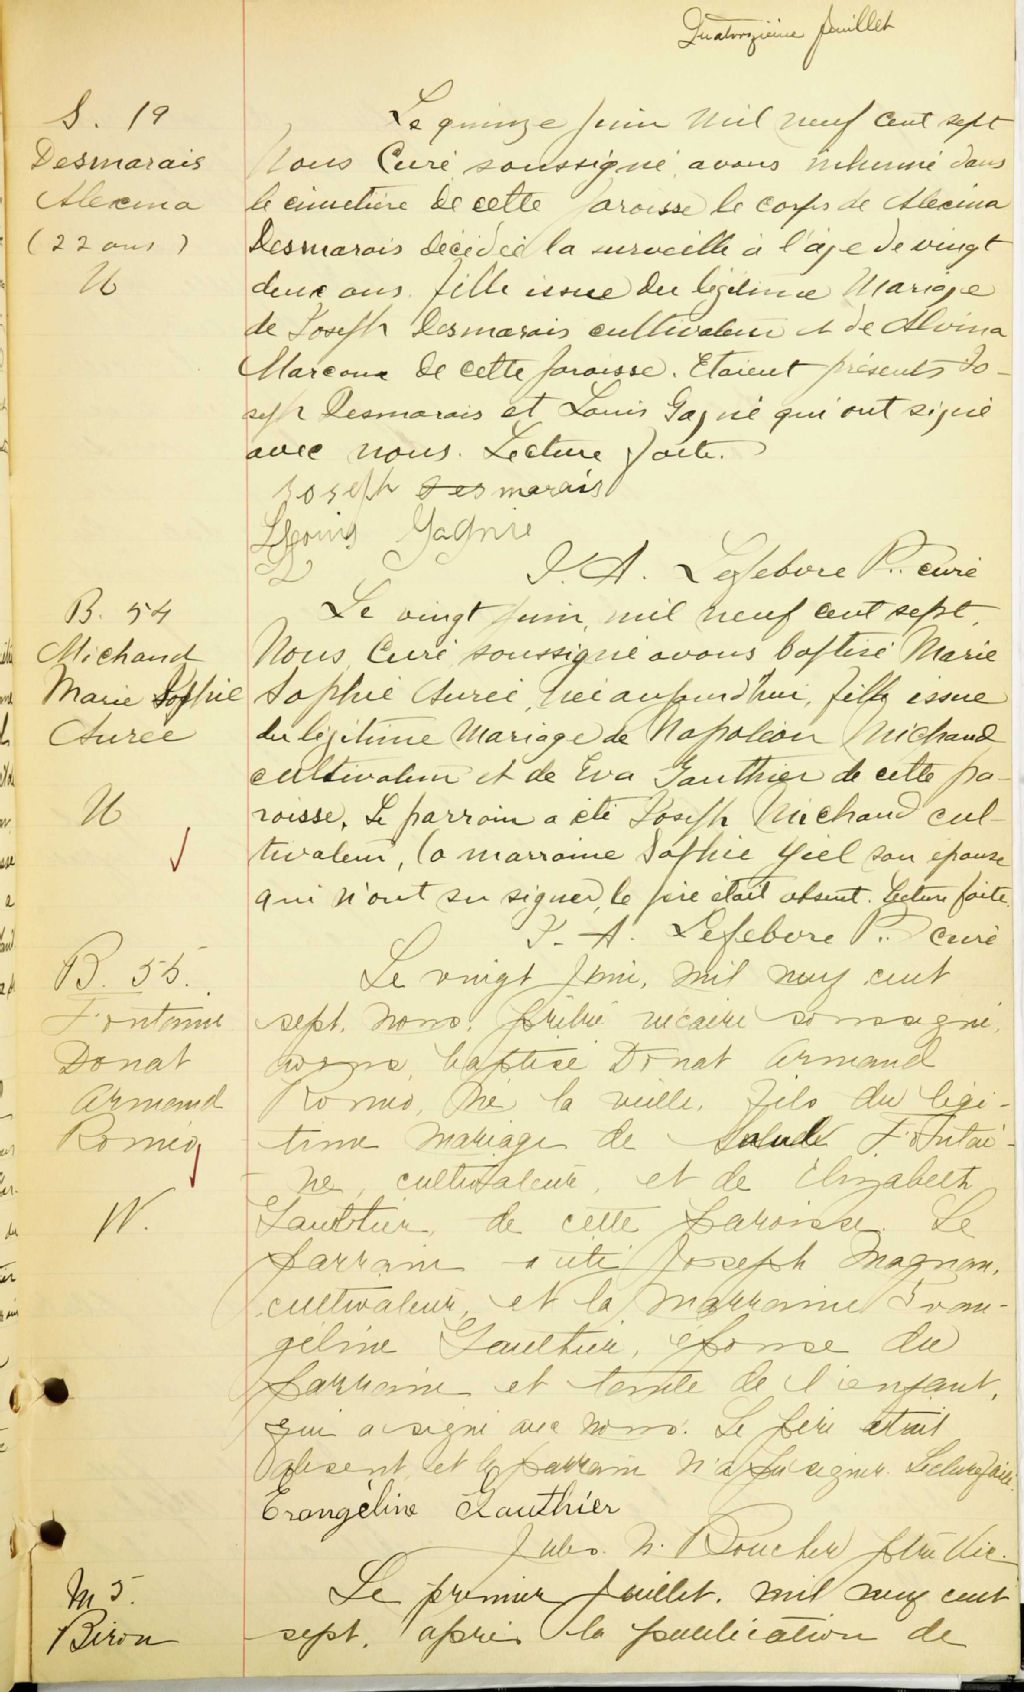 Quatorzième feuillet
S. 19
Desmarais
Alexina
(22 ans)
Le quinze juin mil neuf cent sept
Nous Curé soussigné avons inhumé dans
le cimetière de cette paroisse le corps de Alexina
Desmarais décédée la surveille à l'âge de vingt
deux ans fille issue du légitime Mariage
de Joseph Desmarais cultivateur et de Alvina
Marcoux de cette paroisse. Etaient présents Jo-
seph Desmarais et Louis Gagné qui ont signé
avec nous. Lecture faite.
Joseph Desmarais
Louis Gagnie
J. A. Lefebvre P.. curé
B. 54
Michaud
Marie Sophie
Aurée
Le vingt juin, mil neuf cent sept,
Nous Curé soussigné avons baptisé Marie
Sophie Aurée, née aujourd'hui, fille issue
du légitime Mariage de Napoléon Michaud
cultivateur et de Eva Gauthier de cette pa-
roisse. Le parrain a été Joseph Michaud cul-
tivateur, la marraine Sophie Giel son épouse
qui n'ont su signer, le père était absent. Lecture faite.
J. A. Lefebvre P.. curé
B. 55.
Fontaine
Donat
Armand
Roméo
N.
Le vingt Juin, mil neuf cent
sept, nous, prêtre vicaire soussigné,
avons baptisé Donat Armand
Roméo, né la veille, fils du légi-
time mariage de Fontai-
ne, cultivateur, et de Elizabeth
Gaulthier, de cette paroisse. Le
parrain a été Joseph Magnan,
cultivateur, et la marraine Evan-
géline Gaulthier, épouse du
parrain et tante de l'enfant,
qui a signé avec nous. Le père était
absent et le parrain n'a su signer. Lecture faite.
Evangéline Gauthier
Jules. N. Boucher ptre Vic.
M 5.
Biron
Le premier Juillet, mil neuf cent
sept, après la publication de